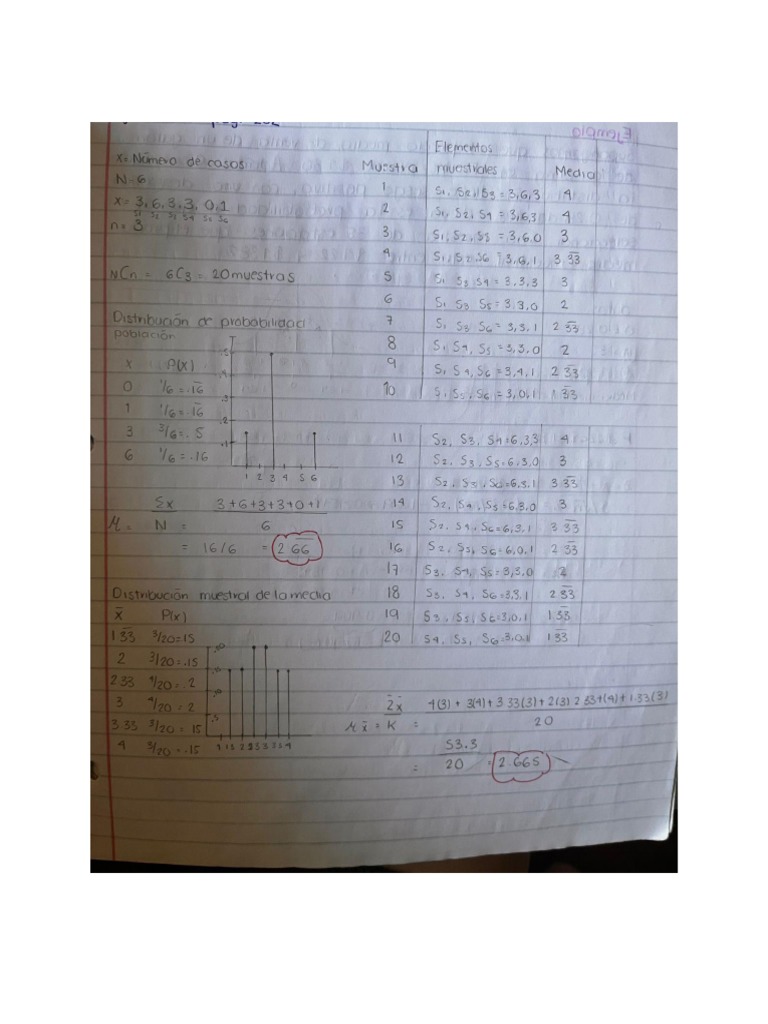 Ejemplo
x= Número de casos
N=6
x= 3, 6, 3, 3, 0, 1
S1 S2 S3 S4 S5 S6
n= 3
NCn = 6C3 = 20 muestras
Distribución de probabilidad
población
x P(x)
0 1/6 = .16
1 1/6 = .16
3 3/6 = .5
6 1/6 = .16
1 2 3 4 5 6
Σx 3+6+3+3+0+1
μ = N = 6
= 16/6 = 2.66
Distribución muestral de la media
x̄ P(x)
1.33 3/20=15
2 3/20=.15
2.33 4/20=.2
3 4/20=.2
3.33 3/20=15
4 3/20=.15
Muestra Elementos muestrales Media
1 S1, S2, S3 = 3,6,3 4
2 S1, S2, S4 = 3,6,3 4
3 S1, S2, S5 = 3,6,0 3
4 S1, S2, S6 = 3,6,1 3.33
5 S1 S3 S4 = 3,3,3 3
6 S1 S3 S5 = 3,3,0 2
7 S1 S3 S6 = 3,3,1 2.33
8 S1 S4, S5 = 3,3,0 2
9 S1 S4, S6 = 3,4,1 2.33
10 S1 S5, S6 = 3,0,1 1.33
11 S2, S3, S4=6,3,3 4
12 S2, S3, S5=6,3,0 3
13 S2, S3, S6=6,3,1 3.33
14 S2, S4, S5=6,3,0 3
15 S2, S4, S6=6,3,1 3.33
16 S2, S5, S6=6,0,1 2.33
17 S3, S4, S5=3,3,0 2
18 S3, S4, S6=3,3,1 2.33
19 S3, S5, S6=3,0,1 1.33
20 S4, S5, S6=3,0,1 1.33
Σx̄ 4(3) + 3(4)+3.33(3)+2(3) 2.33+(4)+1.33(3)
μx̄ = K = 20
53.3
= 20 = 2.665